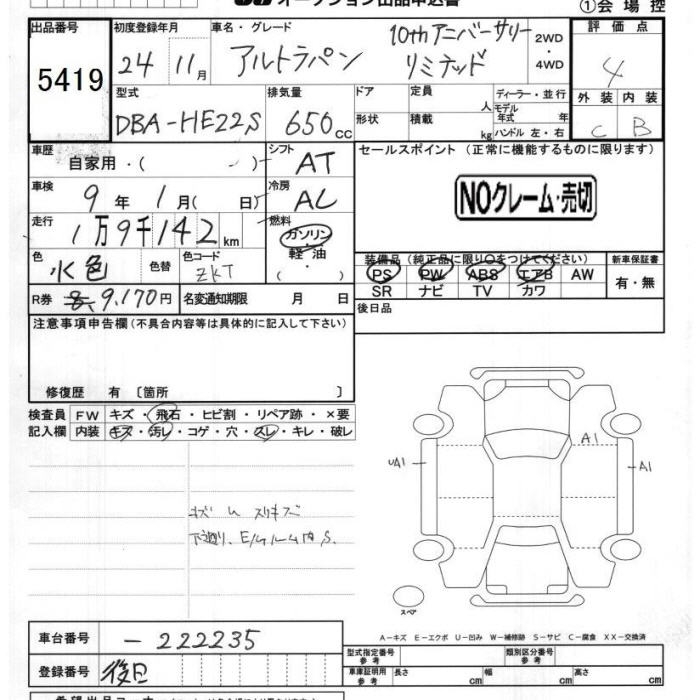 オークション出品申込書
①会場控
出品番号 5419
初度登録年月 24 11月
車名・グレード アルトラパン 10thアニバーサリー リミテッド
2WD
・
4WD
評価点 4
外装 内装
C B
型式 DBA-HE22S
排気量 650cc
ドア
形状
定員 人
積載 kg
ディーラー・並行
モデル年式 年
ハンドル 左・右
車歴 自家用・( )
シフト AT
セールスポイント (正常に機能するものに限ります)
NOクレーム・売切
車検 9年 1月( 日)
冷房 AC
走行 1万9千142km
燃料 ガソリン
軽・油
( ・ )
色 水色
色替
色コード ZKT
装備品 (純正品に限り○をつけてください)
PS PW ABS エアB AW
SR ナビ TV カワ
新車保証書
有・無
R券 9,170円
名変通知期限 月 日
後日品
注意事項申告欄(不具合内容等は具体的に記入して下さい)
修復歴 有 〔箇所 〕
検査員 FW キズ・飛石・ヒビ割・リペア跡・×要
記入欄 内装 キズ・汚レ・コゲ・穴・スレ・キレ・破レ
A1
UA1
A1
キズ ム スリキズ
下廻り、E/gルーム内 S.
スペア
A−キズ E−エクボ U−凹み W−補修跡 S−サビ C−腐食 XX−交換済
車台番号 −222235
型式指定番号 参考
類別区分番号 参考
登録番号 後日
車庫証明用 参考
長さ cm 幅 cm 高さ cm